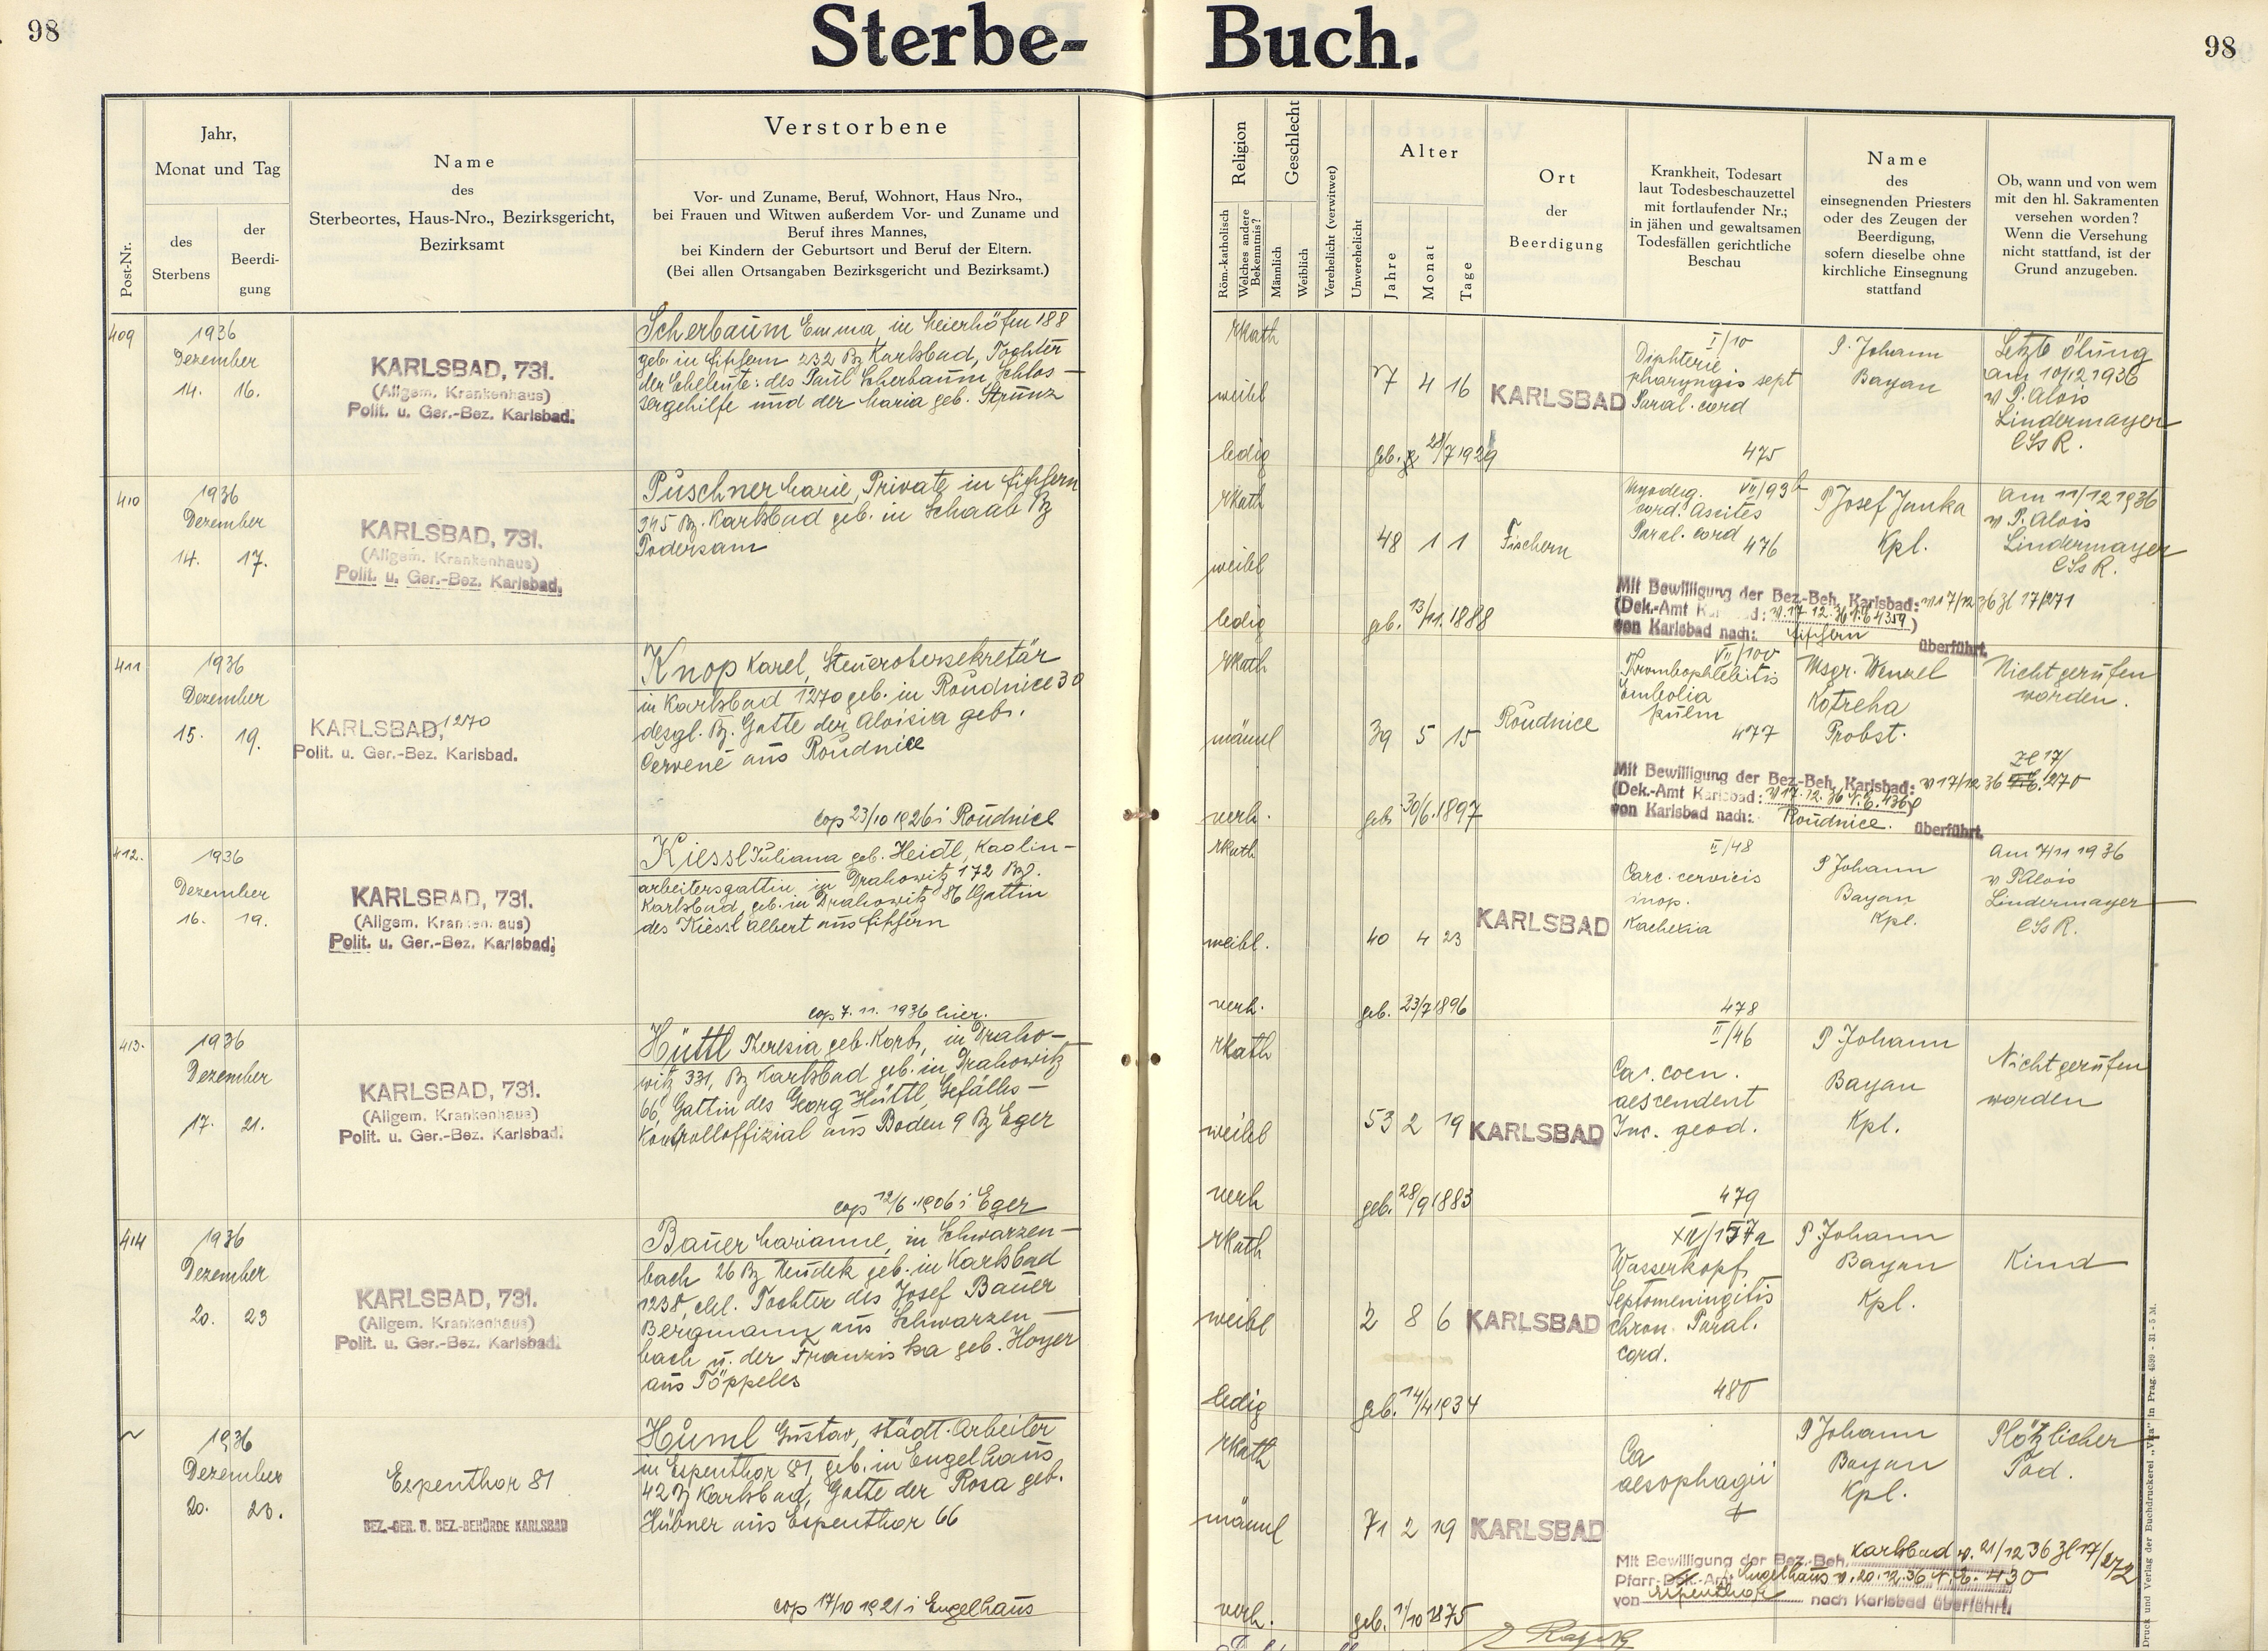 98
Sterbe-
Buch.
98
Post-Nr.
Jahr,
Monat und Tag
des
Sterbens
der
Beerdi-
gung
Name
des
Sterbeortes, Haus-Nro., Bezirksgericht,
Bezirksamt
Verstorbene
Vor- und Zuname, Beruf, Wohnort, Haus Nro.,
bei Frauen und Witwen außerdem Vor- und Zuname und
Beruf ihres Mannes,
bei Kindern der Geburtsort und Beruf der Eltern.
(Bei allen Ortsangaben Bezirksgericht und Bezirksamt.)
Religion
Röm.-katholisch
Welches andere
Bekenntnis?
Geschlecht
Männlich
Weiblich
Verehelicht (verwitwet)
Unverehelicht
Alter
Jahre
Monat
Tage
Ort
der
Beerdigung
Krankheit, Todesart
laut Todesbeschauzettel
mit fortlaufender Nr.;
in jähen und gewaltsamen
Todesfällen gerichtliche
Beschau
Name
des
einsegnenden Priesters
oder des Zeugen der
Beerdigung,
sofern dieselbe ohne
kirchliche Einsegnung
stattfand
Ob, wann und von wem
mit den hl. Sakramenten
versehen worden?
Wenn die Versehung
nicht stattfand, ist der
Grund anzugeben.
409
1936
Dezember
14. 16.
KARLSBAD, 731.
(Allgem. Krankenhaus)
Polit. u. Ger.-Bez. Karlsbad.
Scherbaum Emma, in Meierhöfen 188
geb. in Fischern 232 Bz Karlsbad, Tochter
der Eheleute: des Paul Scherbaum, Schlos-
sergehilfe und der Maria geb. Strunz
rkath
weibl
ledig
7 4 16
geb. 28/7 1929
KARLSBAD
I/10
Diphterie
pharyngis sept
Paral. cord
475
P. Johann
Bayan
Letzte ölung
am 10/12 1936
v P. Alois
Lindermayer
CSsR.
410
1936
Dezember
14. 17.
KARLSBAD, 731.
(Allgem. Krankenhaus)
Polit. u. Ger.-Bez. Karlsbad.
Puschner Marie, Private in Fischern
345 Bz. Karlsbad geb. in Schaab Bz
Podersam
rkath
weibl
ledig
48 1 1
geb. 13/11. 1888
Fischern
Myodeg. VII/93b
cord. Ascites
Paral. cord 476
P Josef Janka
Kpl.
Am 11/12 1936
v P. Alois
Lindermayer
CSsR.
Mit Bewilligung der Bez.-Beh. Karlsbad: v 17/12 36 Zl 17/271
(Dek.-Amt Karlsbad: v. 17. 12. 36 N.E. 4359)
von Karlsbad nach: Fischern überführt.
411
1936
Dezember
15. 19.
KARLSBAD, 1270
Polit. u. Ger.-Bez. Karlsbad.
Knop Karel, Steuerobersekretär
in Karlsbad 1270 geb. in Roudnice 30
desgl. Bz. Gatte der Aloisia geb.
Červené aus Roudnice
cop 23/10 1926 i Roudnice
rkath
männl
verh.
39 5 15
geb 30/6. 1897
Roudnice
VII/100
Thrombophlebitis
Embolia
pulm
477
Msgr. Wenzel
Kotreha
Probst.
Nicht gerufen
worden.
Mit Bewilligung der Bez.-Beh. Karlsbad: v 17/12 36 Zl 17/270
(Dek.-Amt Karlsbad: v 17. 12. 36 N.E. 4360)
von Karlsbad nach: Roudnice. überführt.
412.
1936
Dezember
16. 19.
KARLSBAD, 731.
(Allgem. Kranken aus)
Polit. u. Ger.-Bez. Karlsbad.
Kiessl Juliana geb. Heidl, Kaolin-
arbeitersgattin in Drahowitz 172 Bz.
Karlsbad, geb. in Drahowitz 86 Gattin
des Kiessl Albert aus Fischern
cop 7. 11. 1936 hier.
rkath
weibl.
verh.
40 4 23
geb. 23/7 1896
KARLSBAD
II/48
Carc. cervicis
inop.
Kachexia
478
P Johann
Bayan
Kpl.
Am 7/11 1936
v P Alois
Lindermayer
CSsR.
413.
1936
Dezember
17. 21.
KARLSBAD, 731.
(Allgem. Krankenhaus)
Polit. u. Ger.-Bez. Karlsbad.
Hüttl Theresia geb. Korb, in Draho-
witz 331, Bz Karlsbad geb. in Drahowitz
66 Gattin des Georg Hüttl, Gefälls-
Kontrolloffizial aus Boden 9 Bz Eger
cop 12/6. 1906 i Eger
rkath
weibl
verh
53 2 19
geb. 28/9 1883
KARLSBAD
II/46
Ca. coen.
aescendent
479
P Johann
Bayan
Kpl.
Nicht gerufen
worden
414
1936
Dezember
20. 23
KARLSBAD, 731.
(Allgem. Krankenhaus)
Polit. u. Ger.-Bez. Karlsbad.
Bauer Marianne, in Schwarzen-
bach 26 Bz Neudek geb. in Karlsbad
1238, ehl. Tochter des Josef Bauer
Bergmann aus Schwarzen-
bach u. der Franziska geb. Hoyer
aus Töppeles
rkath
weibl
ledig
2 8 6
geb. 14/4 1934
KARLSBAD
XV/157a
Wasserkopf
Leptomeningitis
chron. Paral.
cord.
480
P Johann
Bayan
Kpl.
Kind
1936
Dezember
20. 23.
Espenthor 81
BEZ.-GER. U. BEZ.-BEHÖRDE KARLSBAD
Huml Gustav, städt. Arbeiter
in Espenthor 81, geb. in Engelhaus
42 Bz Karlsbad, Gatte der Rosa geb.
Hübner aus Espenthor 66
cop 17/10 1921 i Engelhaus
rkath
männl
verh.
71 2 19
geb. 1/10 1875
KARLSBAD
Ca
aesophagii
+
P Johann
Bayan
Kpl.
Plötzlicher
Tod.
Mit Bewilligung der Bez.-Beh. Karlsbad v. 21/12 36 Zl 17/272
Pfarr-Dek.-Amt Engelhaus v. 20. 12. 36 N.E. 430
von Espenthor nach Karlsbad überführt.
Druck und Verlag der Buchdruckerei „Vita" in Prag. 4599 - 31 - 5 M.